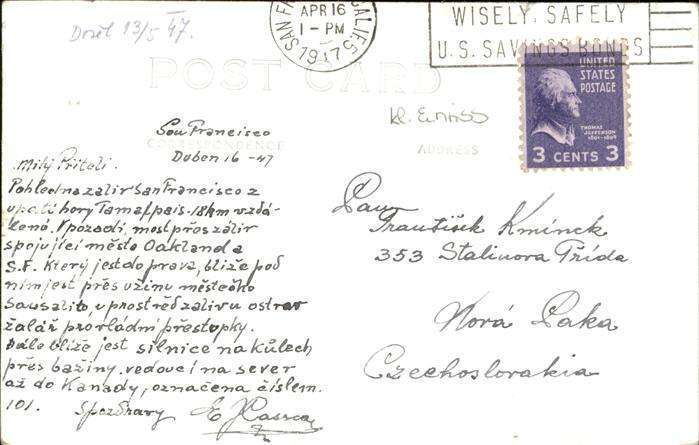 Došl 13/5 47.
SAN FRANCISCO CALIF
APR 16
1 - PM
1947
WISELY, SAFELY
U.S. SAVINGS BONDS
POST CARD
UNITED
STATES
POSTAGE
THOMAS
JEFFERSON
1801-1809
3 CENTS 3
CORRESPONDENCE
ADDRESS
San Francisco
Duben 16 -47
Milý Příteli.
Pohled na zaliv San Francisco z
upatí hory Tamalpais-18km vzdá-
lené. V pozadí, most přes zálir
spojující město Oakland a
S.F. který jest do prava, blíže pod
ním jest přes užinu městečko
Sausalito, uprostřed zalivu ostrov
žalář pro vládní přestupky.
Dále blíže jest silnice na kůlech
přes bažiny, vedoucí na sever
až do Kanady, označena číslem.
101.
Pan
František Kmínek
353 Stalinova Třída
Nová Paka
Czechoslovakia